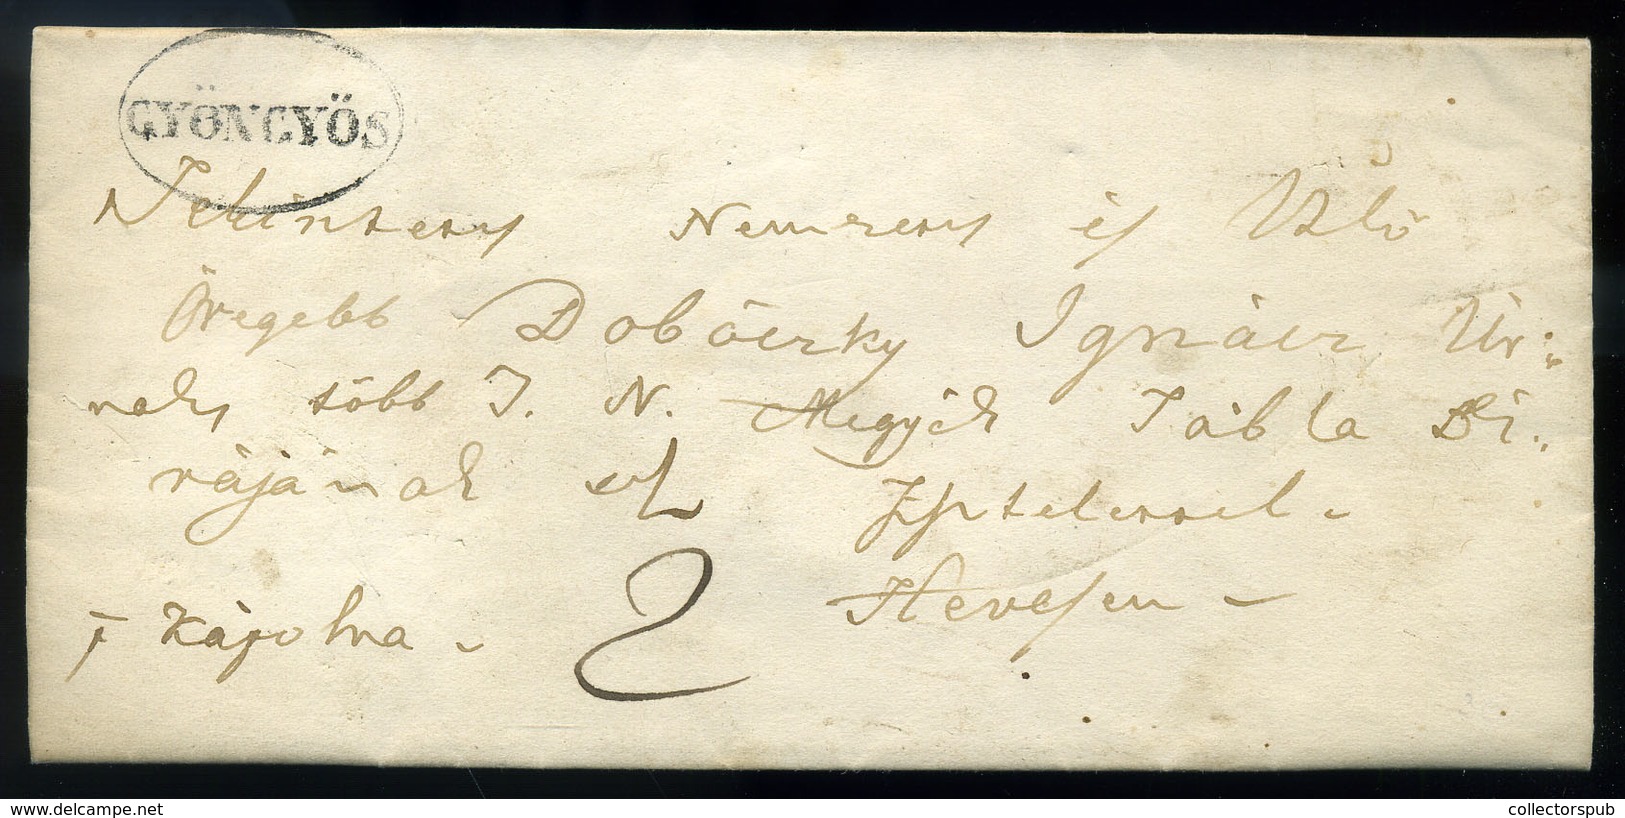 GYÖNGYÖS
Tekintetes Nemzetes és Vitézlő
Öregebb Dobóczky Ignácz Úr:
nak, több T. N. Megyék Tábla Bí„
rájának Tisztelettel
Kápolna Hevesen
2
www.delcampe.net collectorspub